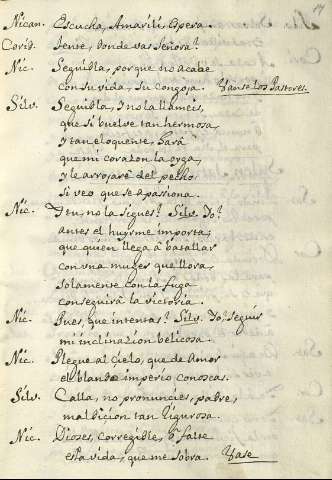 14
Nican. Escucha, Amarili, espera.
Corid. Tente, donde vas Señora?
Nic. Seguidla, porque no acabe
con su vida, su congoja. Vanse los Pastores.
Silv. Seguidla, y no la llameis,
que si buelve tan hermosa,
y tan eloquente, hará
que mi corazon la oyga,
y le arrojaré del pecho
si veo que se apasiona.
Nic. Y tu, no la sigues? Silv. Yo?
antes el huyrme importa;
que quien llega á batallar
con una muger que llora,
solamente con la fuga
conseguirá la victoria.
Nic. Pues, que intentas? Silv. Yo? seguir
mi inclinazion belicosa.
Nic. Plegue al Cielo, que de Amor
el blando imperio conozcas.
Silv. Calla, no pronuncies, padre,
maldicion tan rigurosa.
Nic. Dioses, corregidle, ó falte
esta vida, que me sobra. Vase